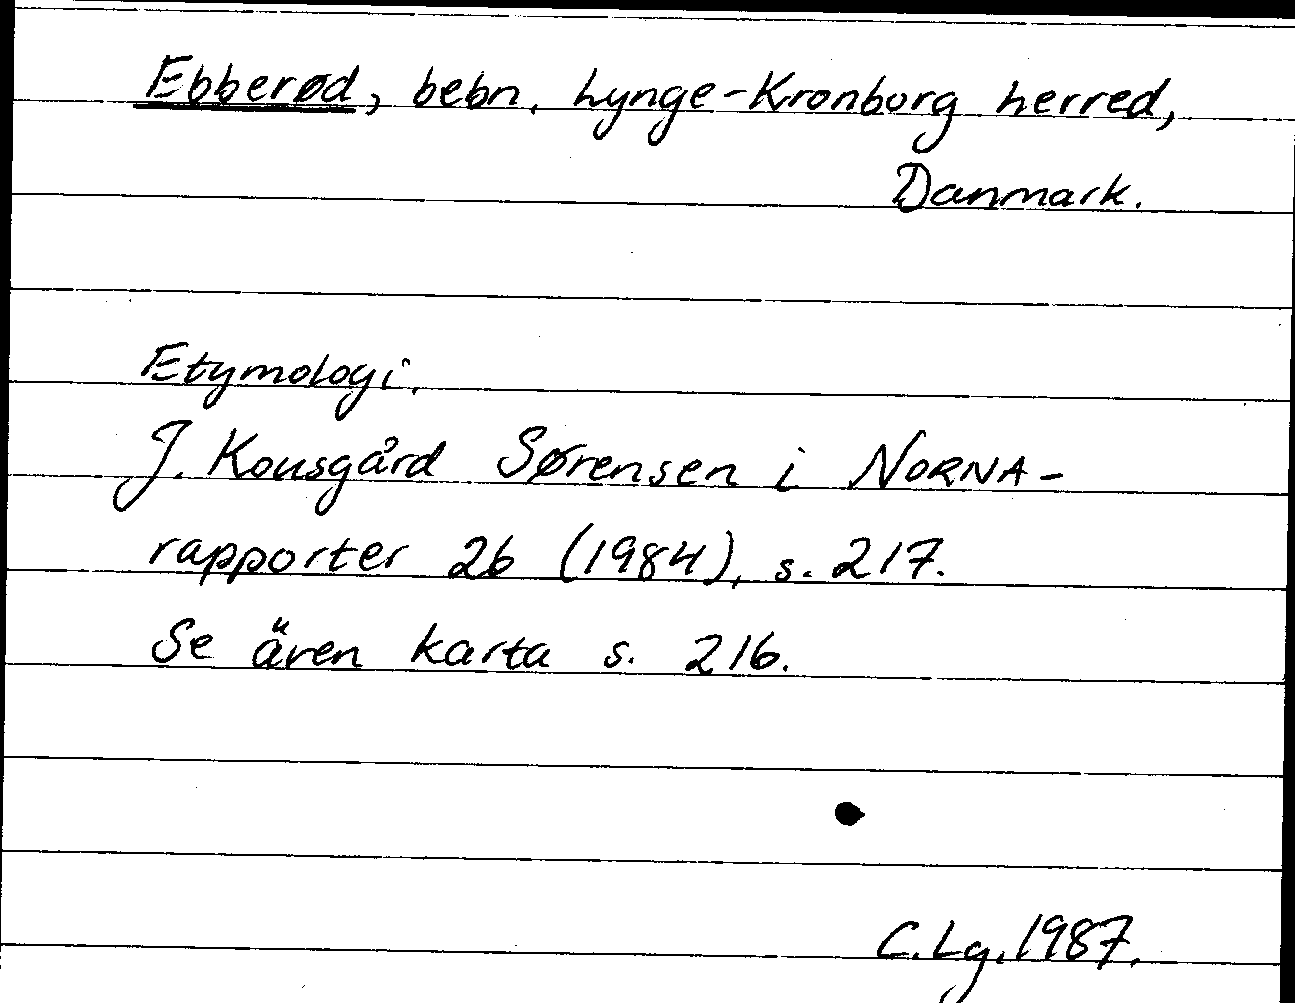 Ebberød, bebn. Lynge-Kronborg herred,
Danmark.
Etymologi.
J. Kousgård Sørensen i NORNA-
rapporter 26 (1984), s. 217.
Se även karta s. 216.
C.Lg. 1987.